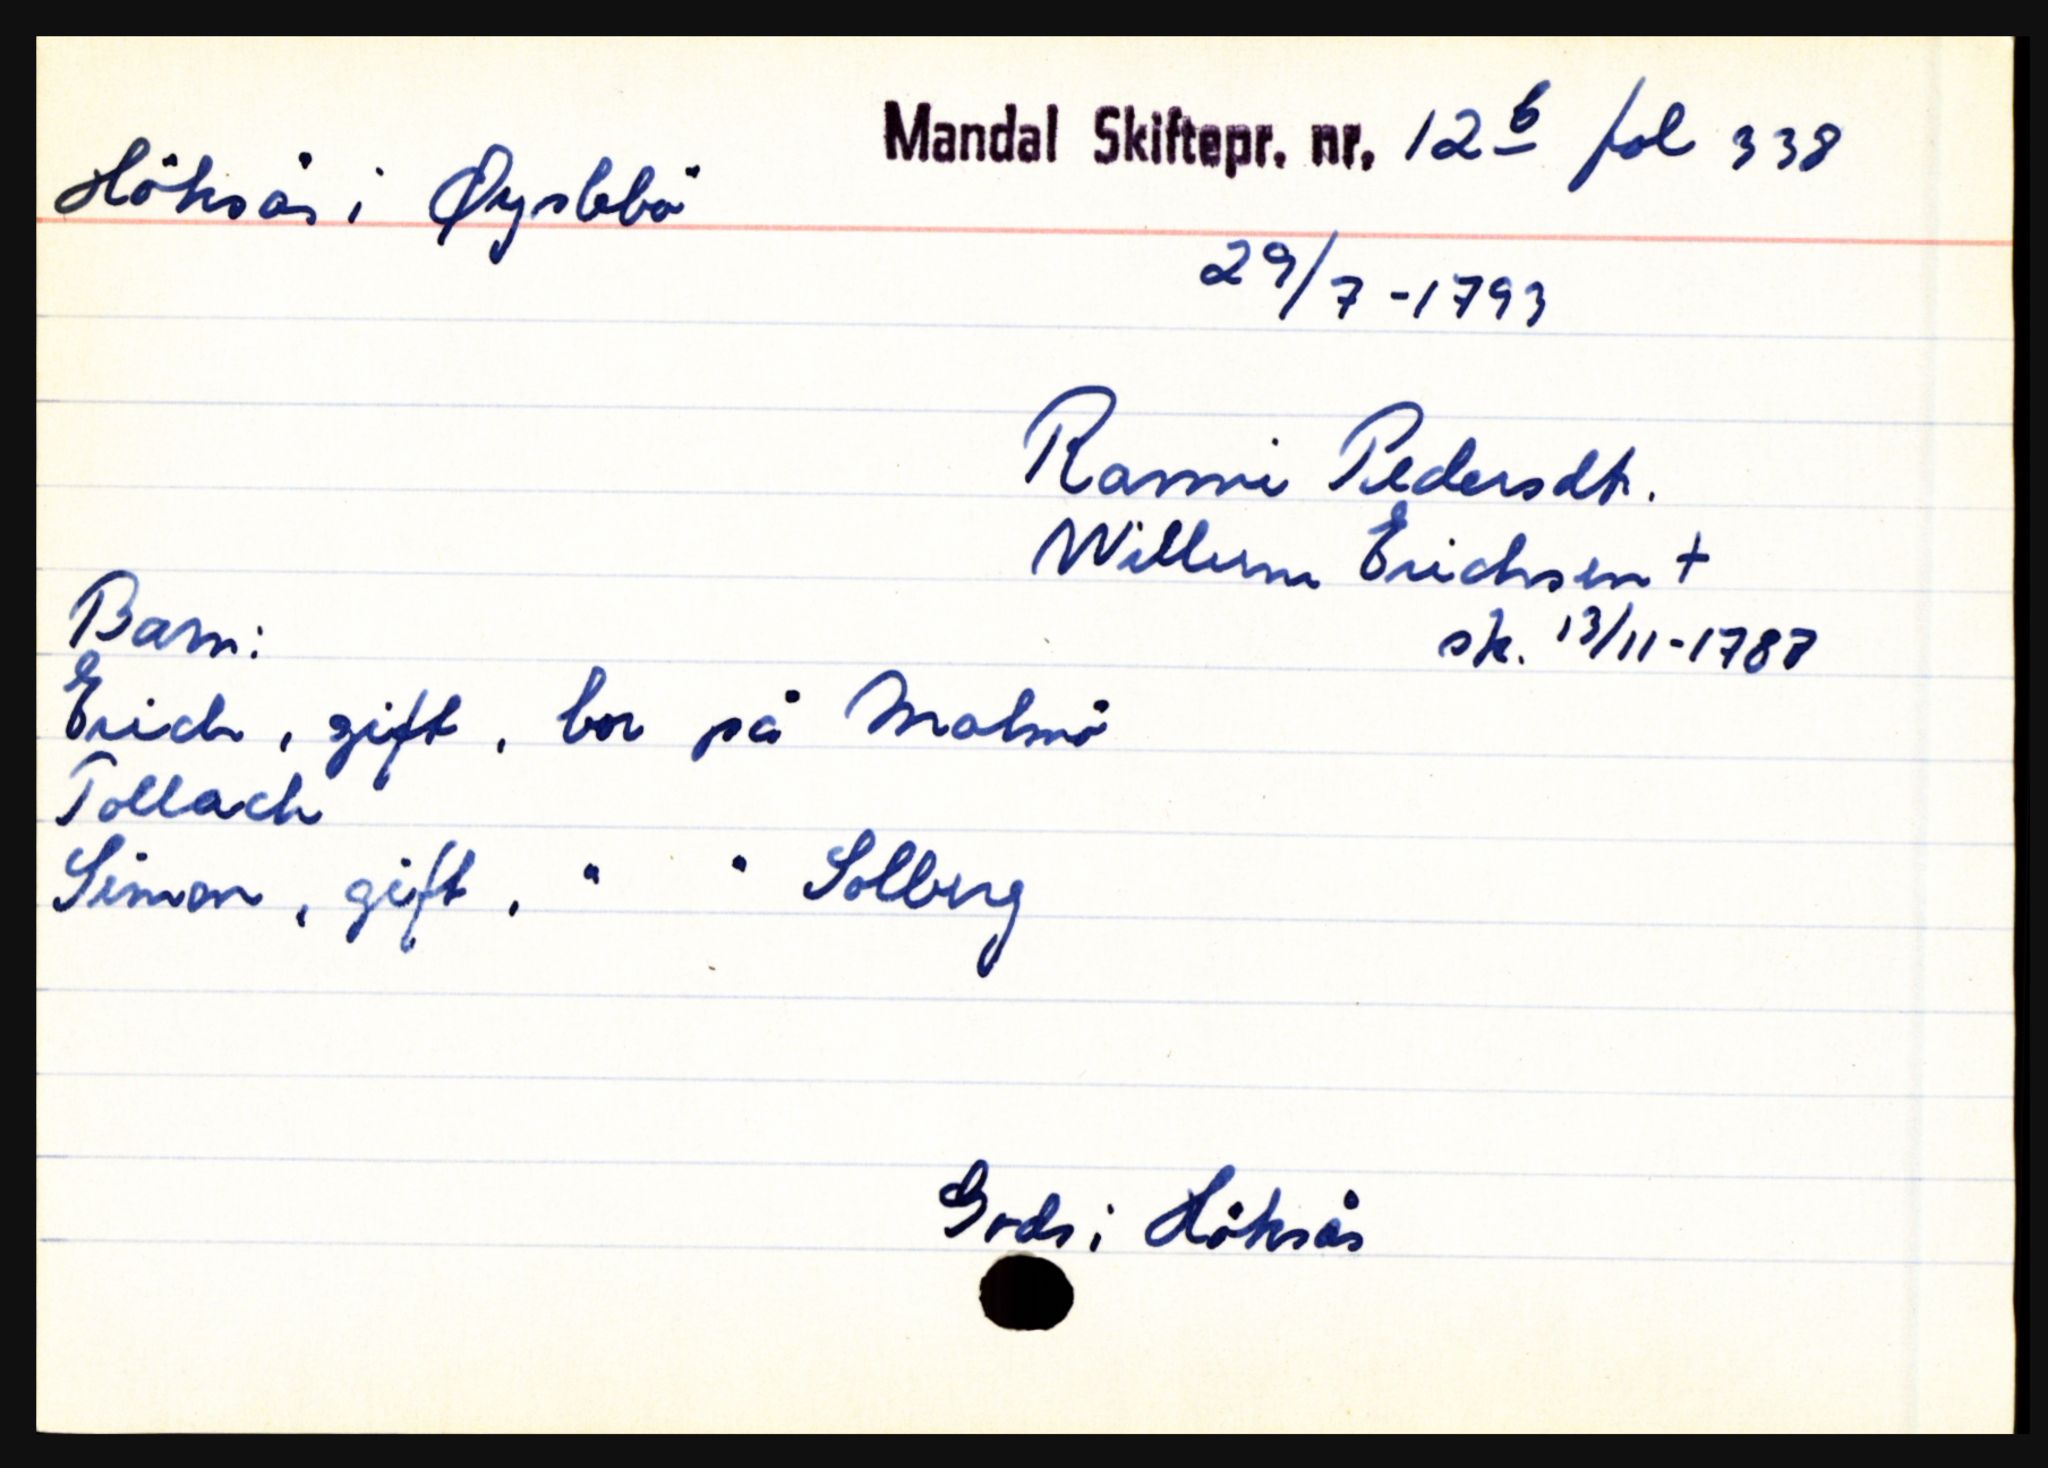 Mandal Skiftepr. nr. 12 b fol 338
Höksås i Øyslebö
29/7-1793
Ranni Pedersdtr.
Willum Erichsen +
sk. 13/11-1787
Barn:
Erich, gift, bor på Malmö
Tollach
Simon, gift, " " Solberg
Gods i Höksås